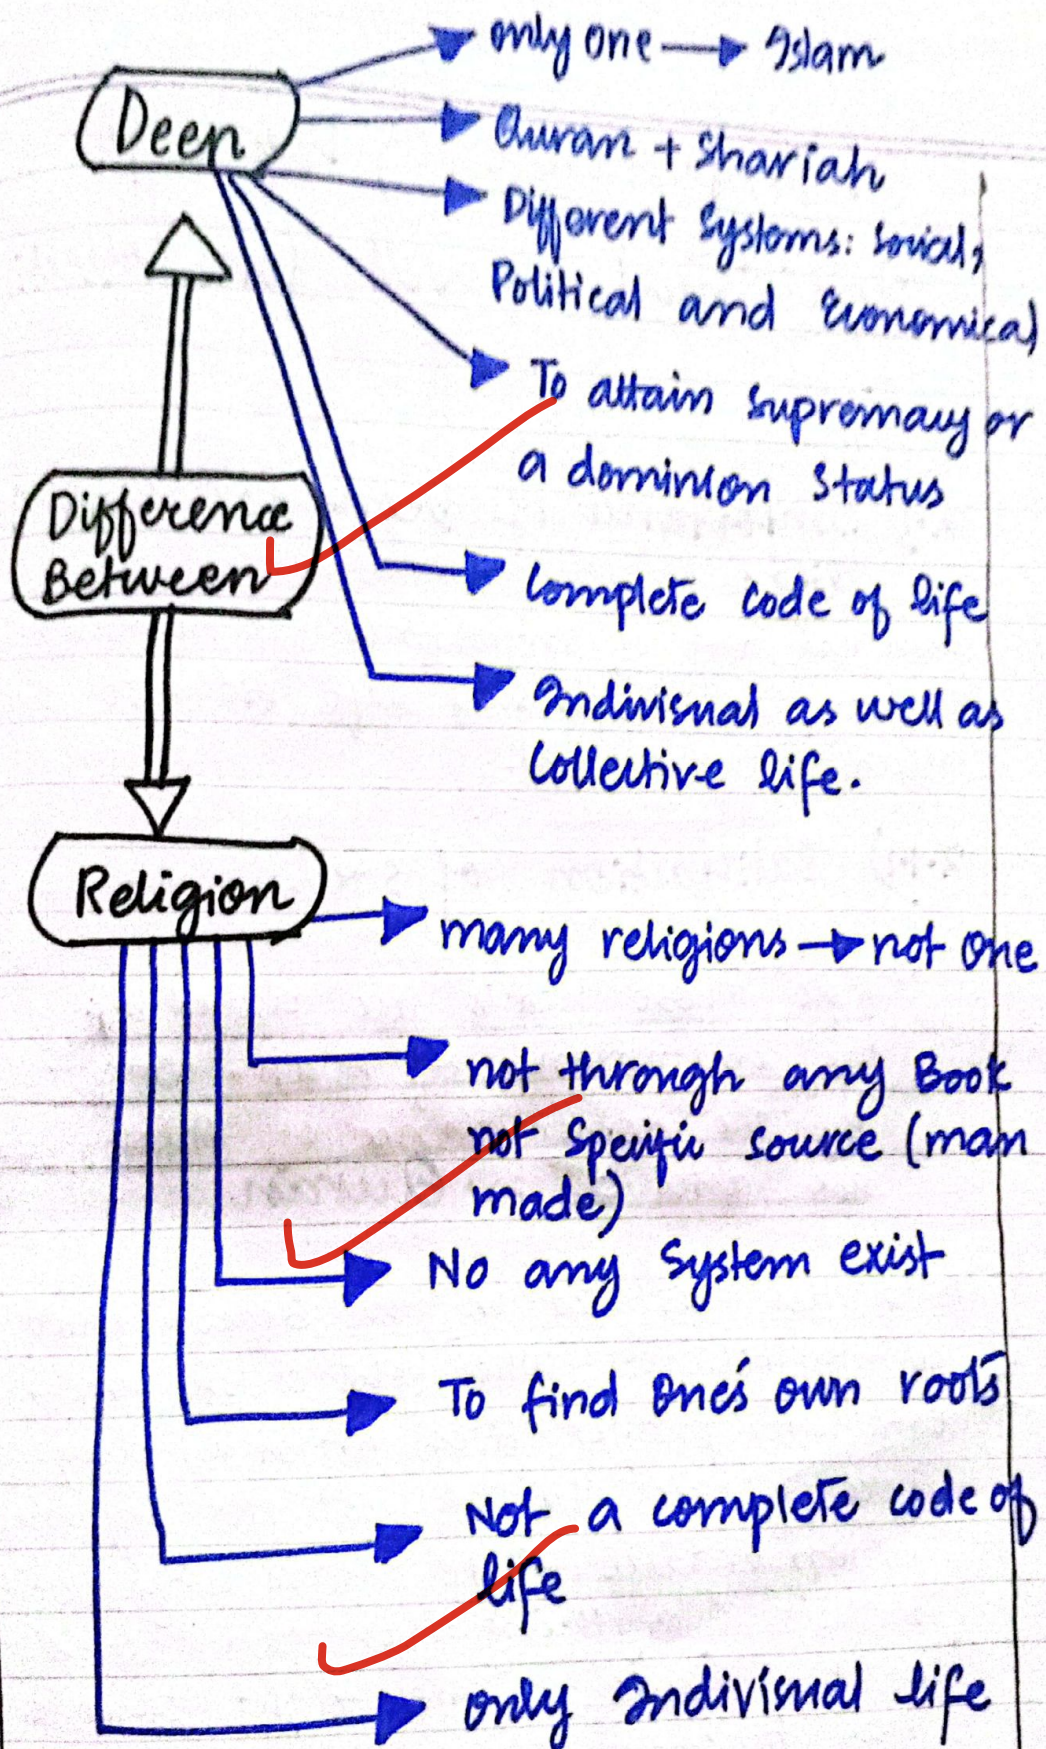 only one → Islam
Deen
Quran + Shariah
Different Systems: Social,
Political and Economical
To attain Supremacy or
a dominion Status
Difference
Between
Complete code of life
Indivisual as well as
Collective life.
Religion
many religions → not one
not through any Book
not Specific source (man
made)
No any System exist
To find one's own roots
Not a complete code of
life
only Indivisual life